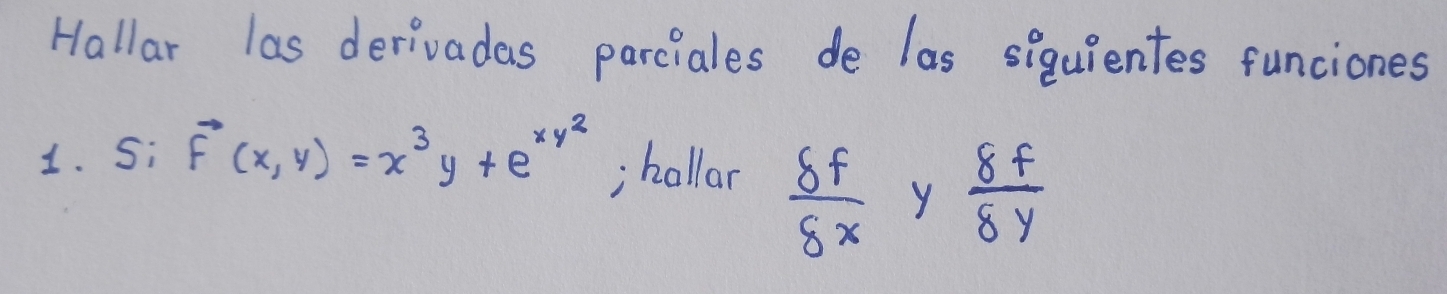 Hallar las derivadas parciales de las siguientes funciones
1. Si $\vec{f}(x,y) = x^3y + e^{xy^2}$; hallar $\frac{\delta f}{\delta x}$ y $\frac{\delta f}{\delta y}$